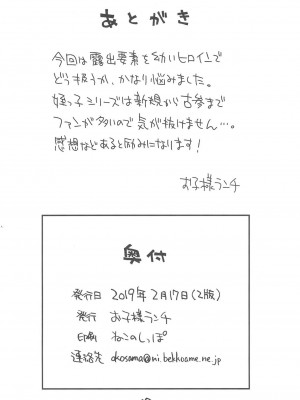 あとがき
今回は露出要素を幼いヒロインで
どう扱うか、かなり悩みました。
姪っ子シリーズは新規から古参まで
ファンが多いので気が抜けません…。
感想などあると励みになります!
お子様ランチ
奥付
発行日 2019年2月17日(2版)
発行 お子様ランチ
印刷 ねこのしっぽ
連絡先 okosama@ni.bekkoame.ne.jp